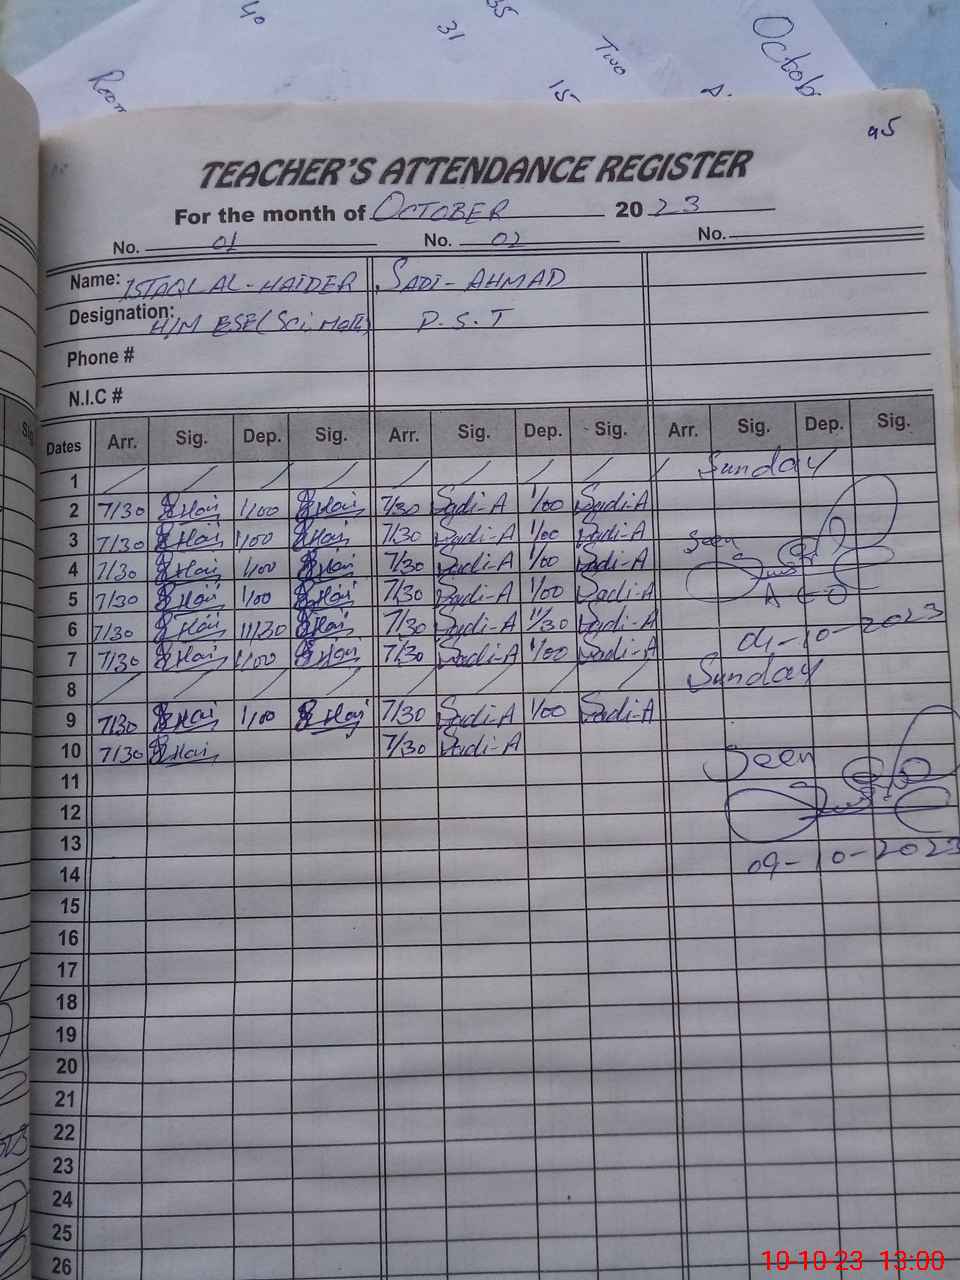 40
35
31
Two
15
Octob
Room
95
TEACHER'S ATTENDANCE REGISTER
For the month of OCTOBER 2023
No. 01 No. 02 No.
Name: ISTAQLAL-HAIDER SADI-AHMAD
Designation: H/M ESE(Sci, Math) P.S.T
Phone #
N.I.C #
Dates Arr. Sig. Dep. Sig. Arr. Sig. Dep. Sig. Arr. Sig. Dep. Sig.
1 Sunday
2 7/30 Hai 1/00 Hai 7/30 Sadi-A 1/00 Sadi-A
3 7/30 Hai 1/00 Hai 7/30 Sadi-A 1/00 Sadi-A Seen
4 7/30 Hai 1/00 Hai 7/30 Sadi-A 1/00 Sadi-A
5 7/30 Hai 1/00 Hai 7/30 Sadi-A 1/00 Sadi-A AEO
6 7/30 Hai 11/30 Hai 7/30 Sadi-A 11/30 Sadi-A 04-10-2023
7 7/30 Hai 1/00 Hai 7/30 Sadi-A 1/00 Sadi-A
8 Sunday
9 7/30 Hai 1/00 Hai 7/30 Sadi-A 1/00 Sadi-A
10 7/30 Hai 7/30 Sadi-A Seen
11
12
13
14 09-10-2023
15
16
17
18
19
20
21
22
23
24
25
26
10-10-23 13:00